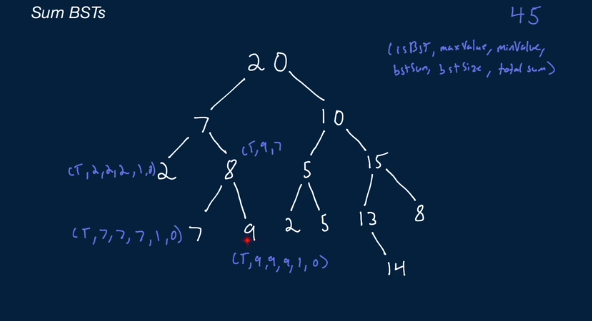 Sum BSTs
45
(isBst, maxValue, minValue,
bstSum, bstSize, totalSum)
20
7 10
(T,2,2,2,1,0) 2 8 (T,9,7 5 15
(T,7,7,7,1,0) 7 9 2 5 13 8
(T,9,9,9,1,0)
14